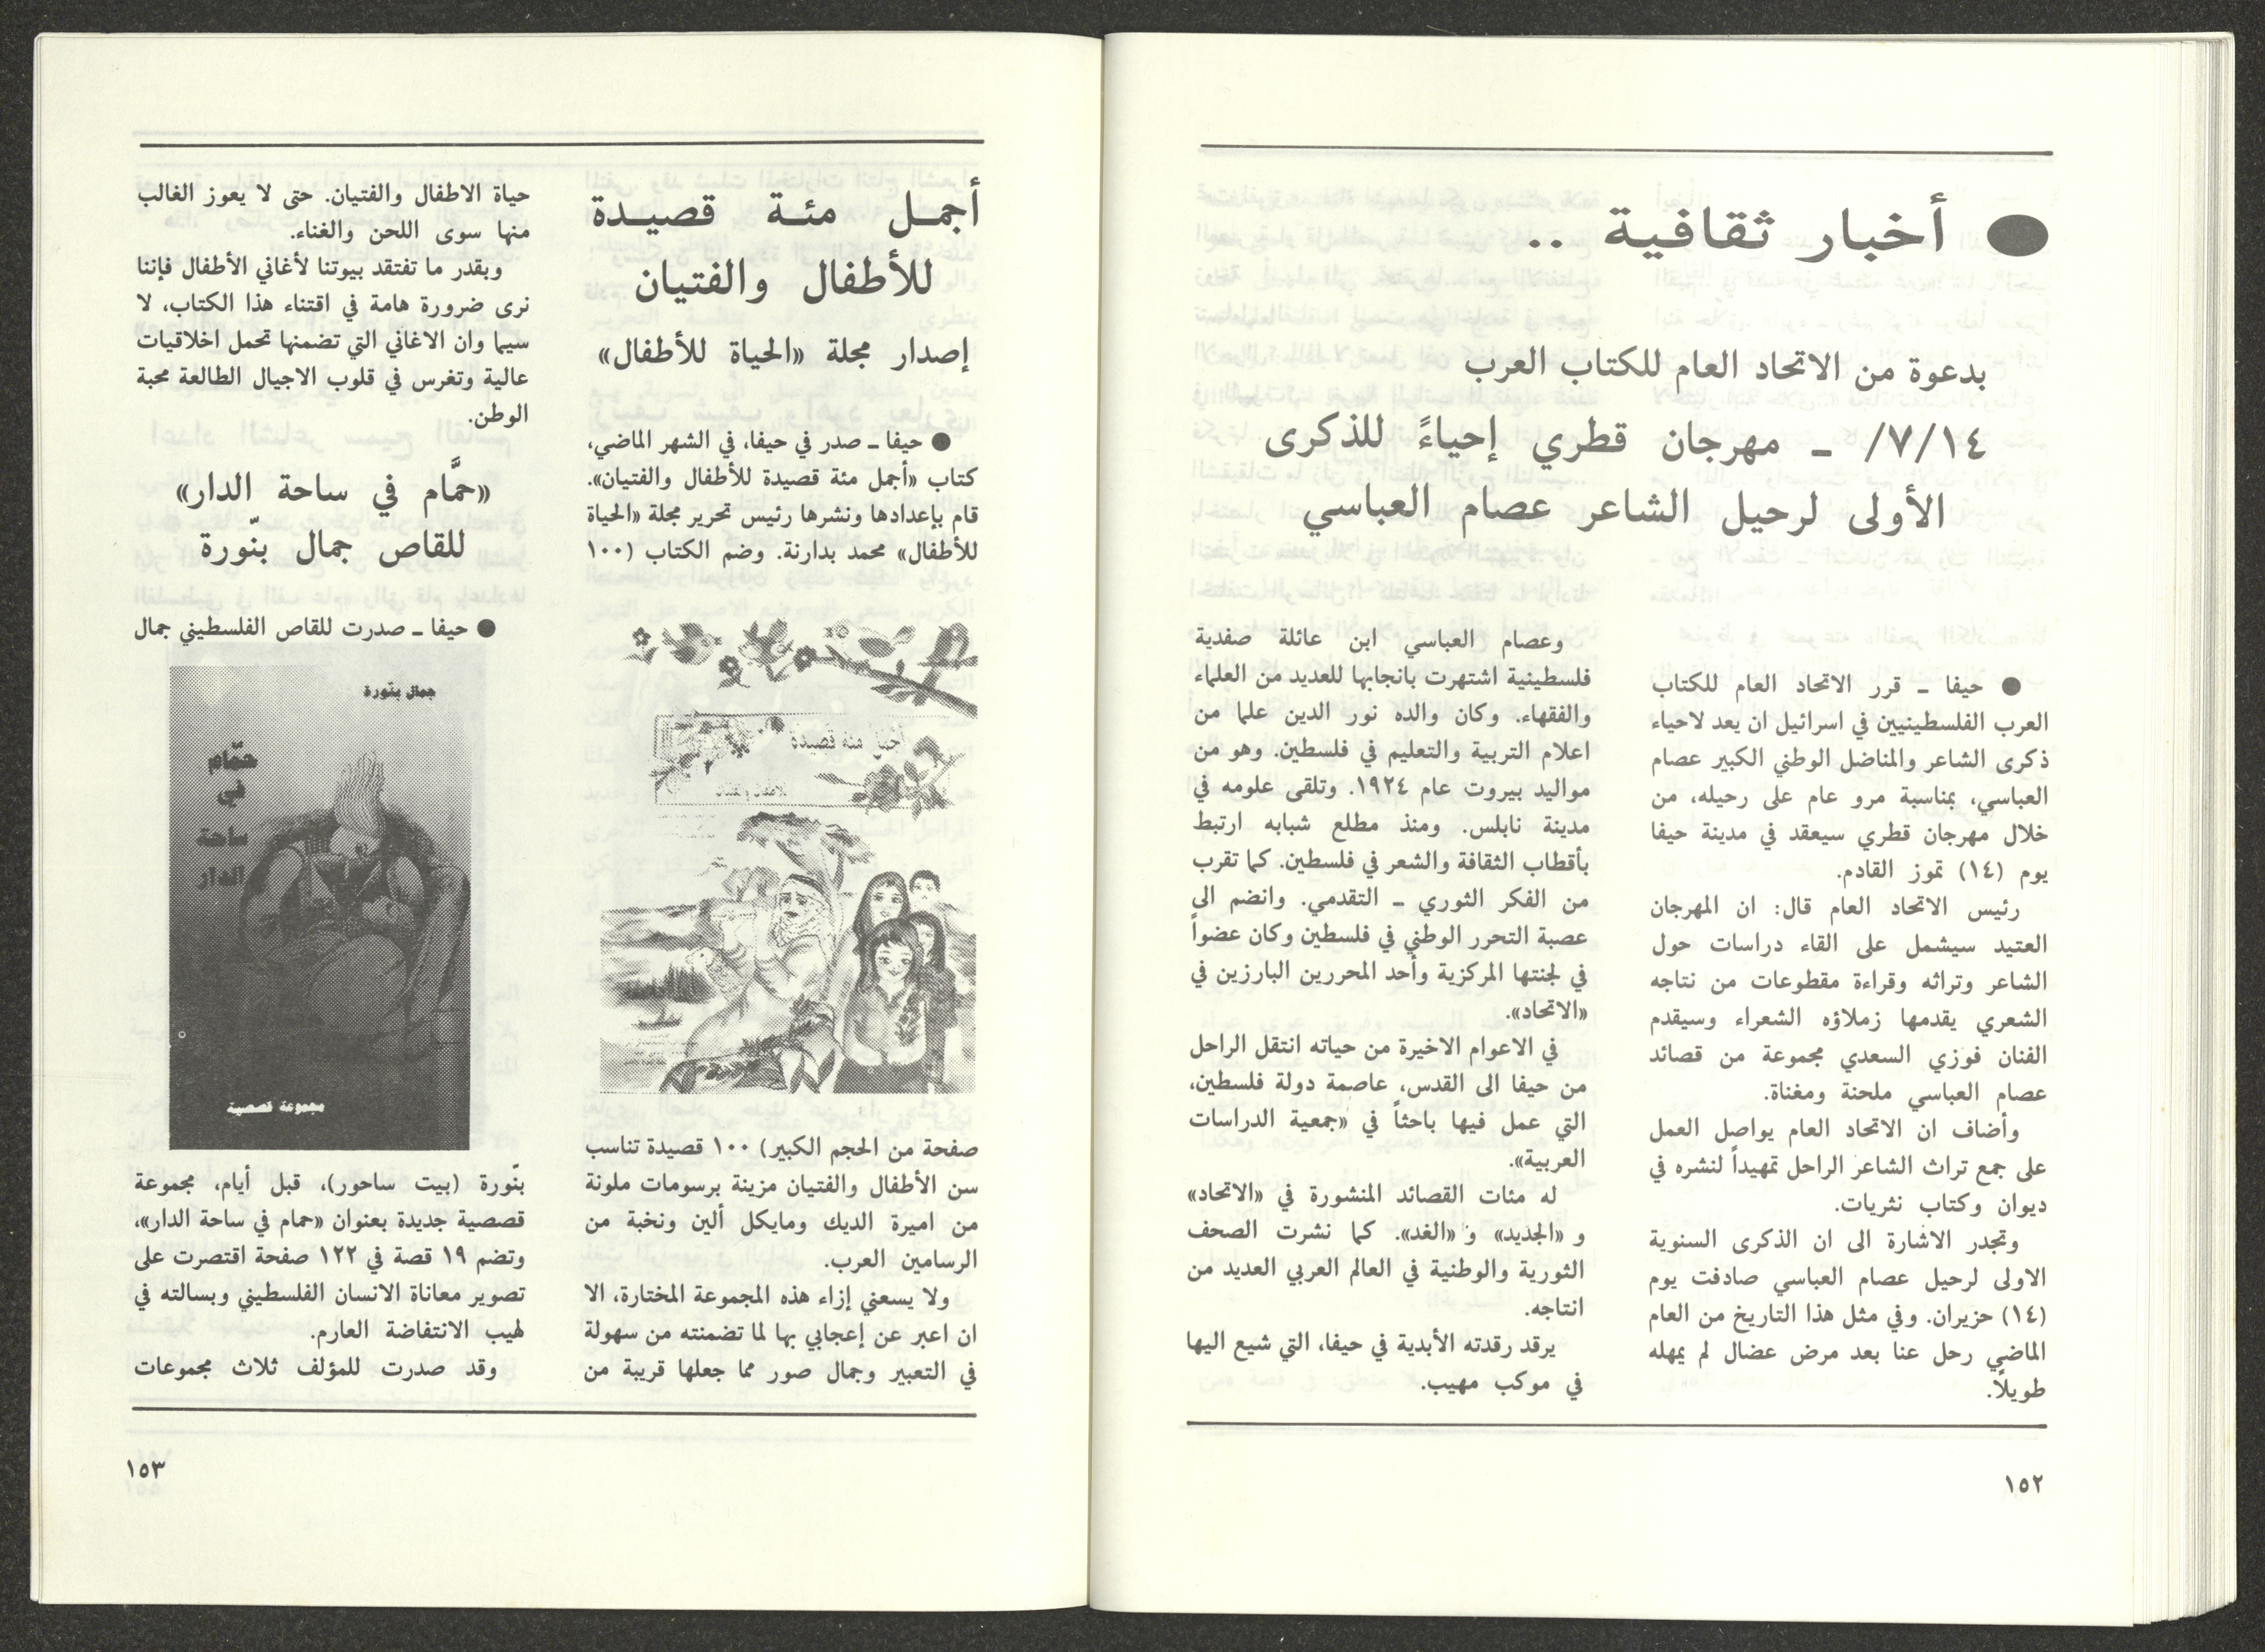 ● أخبار ثقافية ..
بدعوة من الاتحاد العام للكتاب العرب
٧/١٤/ ـ مهرجان قطري إحياءً للذكرى
الأولى لرحيل الشاعر عصام العباسي
● حيفا ـ قرر الاتحاد العام للكتاب
العرب الفلسطينيين في اسرائيل ان يعد لاحياء
ذكرى الشاعر والمناضل الوطني الكبير عصام
العباسي، بمناسبة مرو عام على رحيله، من
خلال مهرجان قطري سيعقد في مدينة حيفا
يوم (١٤) تموز القادم.
رئيس الاتحاد العام قال: ان المهرجان
العتيد سيشمل على القاء دراسات حول
الشاعر وتراثه وقراءة مقطوعات من نتاجه
الشعري يقدمها زملاؤه الشعراء وسيقدم
الفنان فوزي السعدي مجموعة من قصائد
عصام العباسي ملحنة ومغناة.
وأضاف ان الاتحاد العام يواصل العمل
على جمع تراث الشاعر الراحل تمهيداً لنشره في
ديوان وكتاب نثريات.
وتجدر الاشارة الى ان الذكرى السنوية
الاولى لرحيل عصام العباسي صادفت يوم
(١٤) حزيران. وفي مثل هذا التاريخ من العام
الماضي رحل عنا بعد مرض عضال لم يمهله
طويلاً.
وعصام العباسي ابن عائلة صفدية
فلسطينية اشتهرت بانجابها للعديد من العلماء
والفقهاء. وكان والده نور الدين علما من
اعلام التربية والتعليم في فلسطين. وهو من
مواليد بيروت عام ١٩٢٤. وتلقى علومه في
مدينة نابلس. ومنذ مطلع شبابه ارتبط
بأقطاب الثقافة والشعر في فلسطين. كما تقرب
من الفكر الثوري ـ التقدمي. وانضم الى
عصبة التحرر الوطني في فلسطين وكان عضواً
في لجنتها المركزية وأحد المحررين البارزين في
«الاتحاد».
في الاعوام الاخيرة من حياته انتقل الراحل
من حيفا الى القدس، عاصمة دولة فلسطين،
التي عمل فيها باحثاً في «جمعية الدراسات
العربية».
له مئات القصائد المنشورة في «الاتحاد»
و «الجديد» و «الغد». كما نشرت الصحف
الثورية والوطنية في العالم العربي العديد من
انتاجه.
يرقد رقدته الأبدية في حيفا، التي شيع اليها
في موكب مهيب.
١٥٢
أجمل مئة قصيدة
للأطفال والفتيان
إصدار مجلة «الحياة للأطفال»
● حيفا ـ صدر في حيفا، في الشهر الماضي،
كتاب «أجمل مئة قصيدة للأطفال والفتيان».
قام بإعدادها ونشرها رئيس تحرير مجلة «الحياة
للأطفال» محمد بدارنة. وضم الكتاب (١٠٠
أجمل مئة قصيدة
للأطفال والفتيان
صفحة من الحجم الكبير) ١٠٠ قصيدة تناسب
سن الأطفال والفتيان مزينة برسومات ملونة
من اميرة الديك ومايكل ألين ونخبة من
الرسامين العرب.
ولا يسعني إزاء هذه المجموعة المختارة، الا
ان اعبر عن إعجابي بها لما تضمنته من سهولة
في التعبير وجمال صور مما جعلها قريبة من
حياة الاطفال والفتيان. حتى لا يعوز الغالب
منها سوى اللحن والغناء.
وبقدر ما تفتقد بيوتنا لأغاني الأطفال فإننا
نرى ضرورة هامة في اقتناء هذا الكتاب، لا
سيما وان الاغاني التي تضمنها تحمل اخلاقيات
عالية وتغرس في قلوب الاجيال الطالعة محبة
الوطن.
«حمَّام في ساحة الدار»
للقاص جمال بنّورة
● حيفا ـ صدرت للقاص الفلسطيني جمال
جمال بنورة
حمّام
في
ساحة
الدار
مجموعة قصصية
بنّورة (بيت ساحور)، قبل أيام، مجموعة
قصصية جديدة بعنوان «حمام في ساحة الدار»،
وتضم ١٩ قصة في ١٢٢ صفحة اقتصرت على
تصوير معاناة الانسان الفلسطيني وبسالته في
لهيب الانتفاضة العارم.
وقد صدرت للمؤلف ثلاث مجموعات
١٥٣